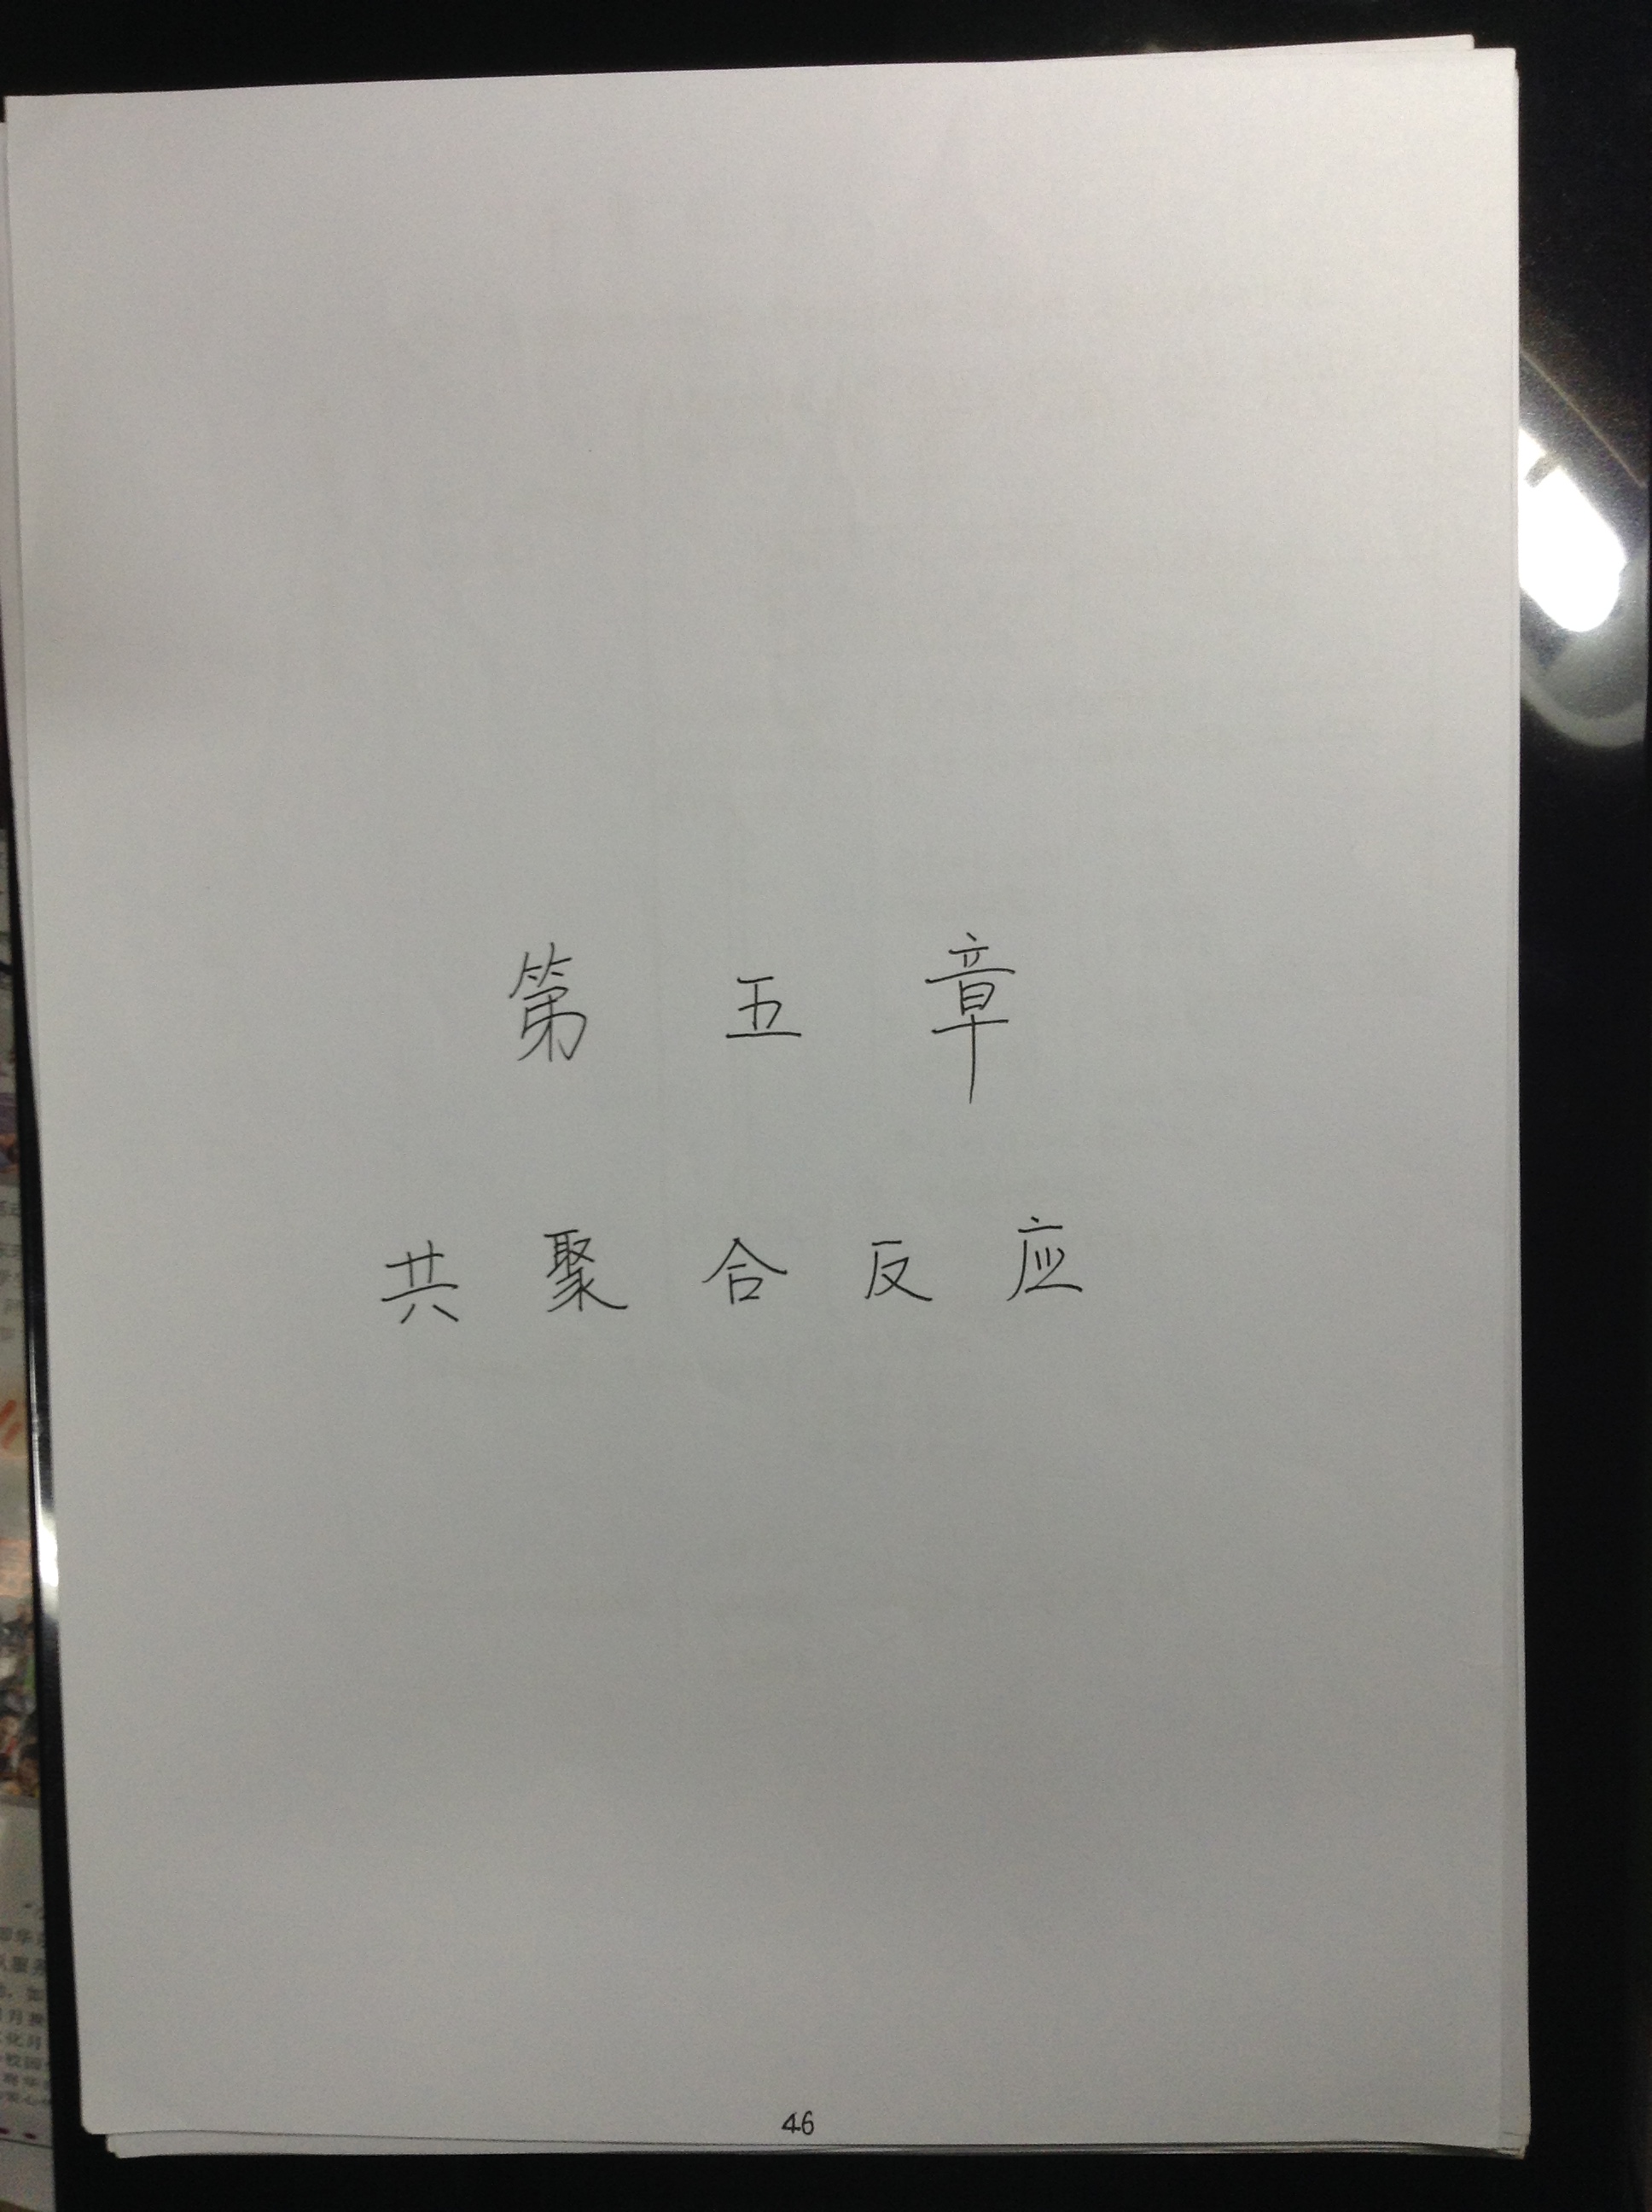 第五章
共聚合反应
46